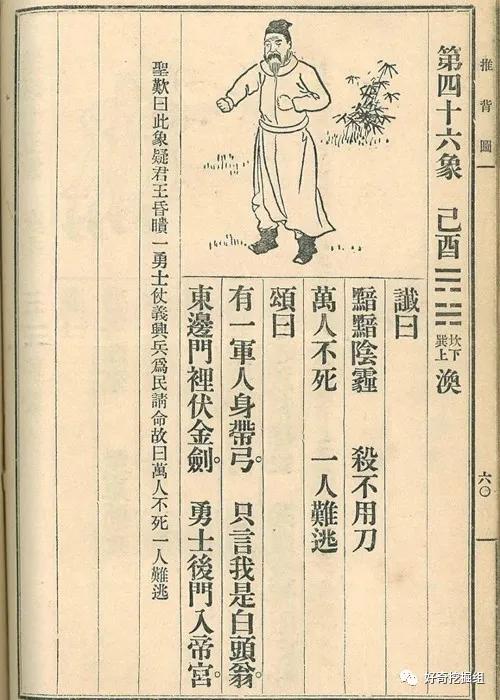 推背圖
六〇
第四十六象 己酉 ䷺ 坎下巽上 渙
讖曰
黯黯陰霾 殺不用刀
萬人不死 一人難逃
頌曰
有一軍人身帶弓。 只言我是白頭翁。
東邊門裡伏金劍。 勇士後門入帝宮。
聖歎曰此象疑君王昏瞶一勇士仗義興兵爲民請命故曰萬人不死一人難逃
好奇挖掘组